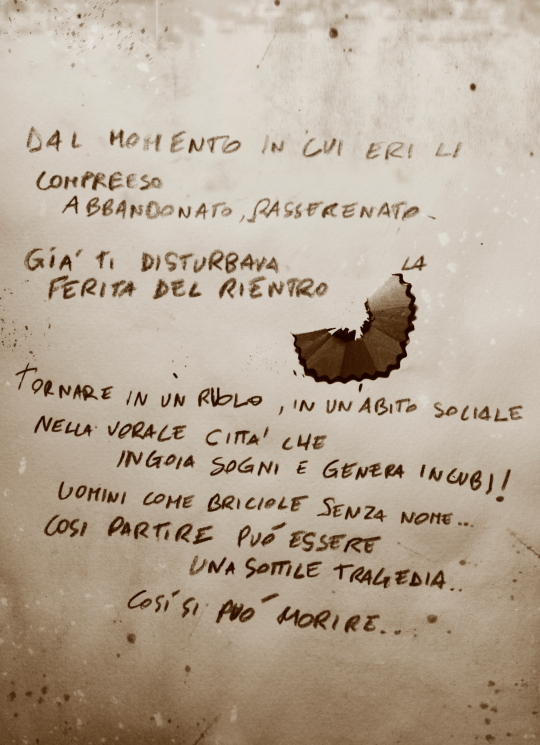 DAL MOMENTO IN CUI ERI LI
COMPREESO
ABBANDONATO, RASSERENATO.
GIA' TI DISTURBAVA LA
FERITA DEL RIENTRO
TORNARE IN UN RUOLO, IN UN'ABITO SOCIALE
NELLA VORALE CITTA' CHE
INGOIA SOGNI E GENERA INCUBI!
UOMINI COME BRICIOLE SENZA NOME...
COSI PARTIRE PUÓ ESSERE
UNA SOTTILE TRAGEDIA..
COSÍ SI PUÓ MORIRE...